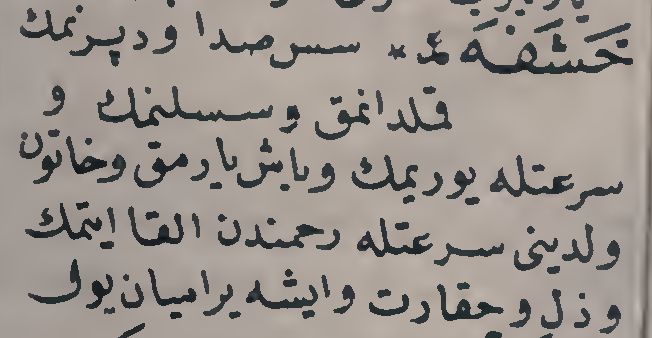 خَشَفَه ع * سس صدا ودپرنمك
قلدانمق وسسلنمك و
سرعتله يوريمك وباش يارمق وخاتون
ولدينى سرعتله رحمندن القا ايتمك
وذل وحقارت وايشه يراميان يول